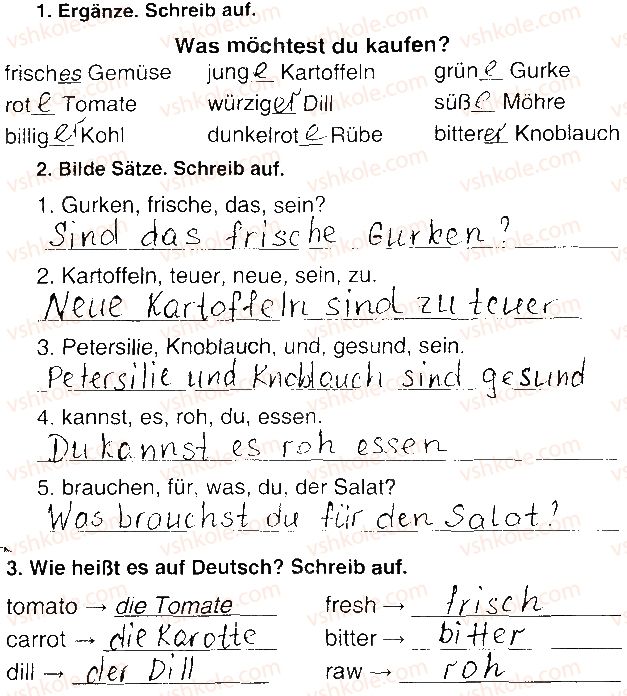 1. Ergänze. Schreib auf.
Was möchtest du kaufen?
frisches Gemüse junge Kartoffeln grüne Gurke
rote Tomate würziger Dill süße Möhre
billiger Kohl dunkelrote Rübe bitterer Knoblauch
2. Bilde Sätze. Schreib auf.
1. Gurken, frische, das, sein?
Sind das frische Gurken?
2. Kartoffeln, teuer, neue, sein, zu.
Neue Kartoffeln sind zu teuer
3. Petersilie, Knoblauch, und, gesund, sein.
Petersilie und Knoblauch sind gesund
4. kannst, es, roh, du, essen.
Du kannst es roh essen
5. brauchen, für, was, du, der Salat?
Was brauchst du für den Salat?
3. Wie heißt es auf Deutsch? Schreib auf.
tomato → die Tomate fresh → frisch
carrot → die Karotte bitter → bitter
dill → der Dill raw → roh